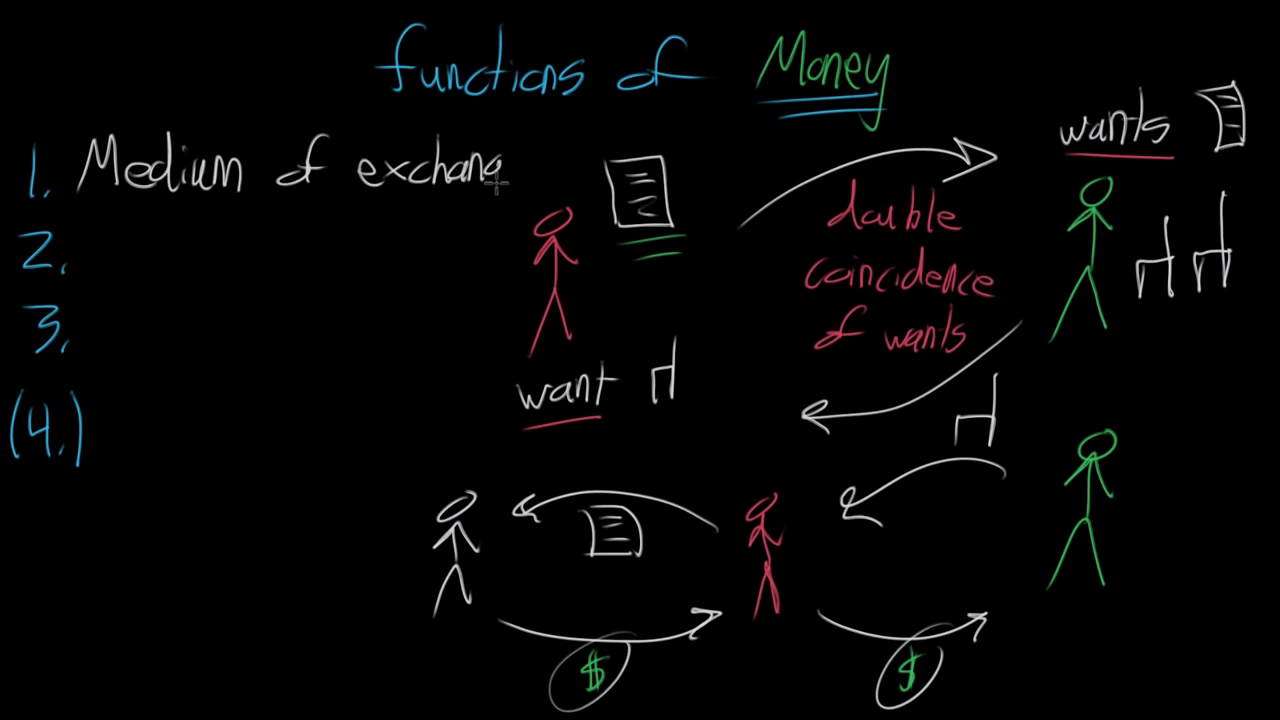 functions of Money
1. Medium of exchang
2.
3.
(4.)
wants
double
coincidence
of wants
want
$
$